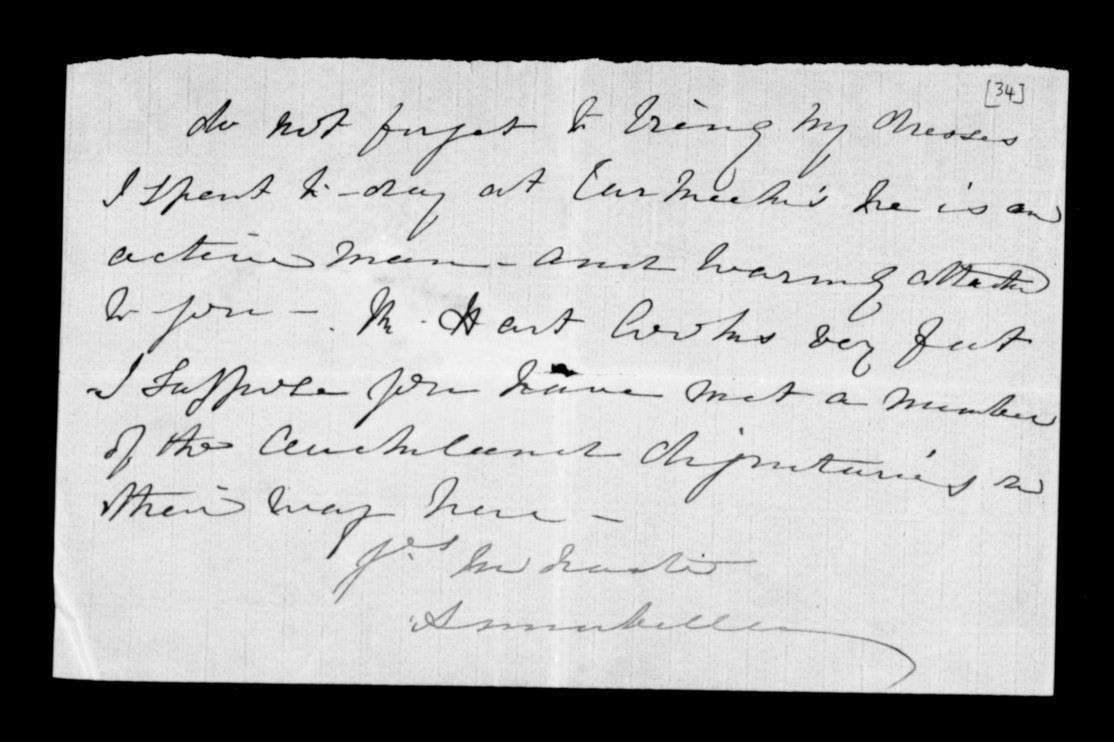 [34]
do not forget to bring my dresses
I spent to-day at he is an
active man - and warmly attached
to you - Mr. Hart looks very fat
I suppose you have met a number
of the Auckland dignitaries on
their way here -
Yrs in haste
Annabella